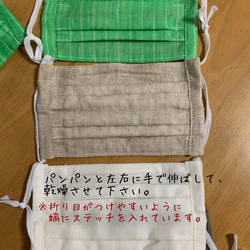 パンパンと左右に手で伸ばして、
乾燥させて下さい。
※折り目がつけやすいように
端にステッチを入れています。